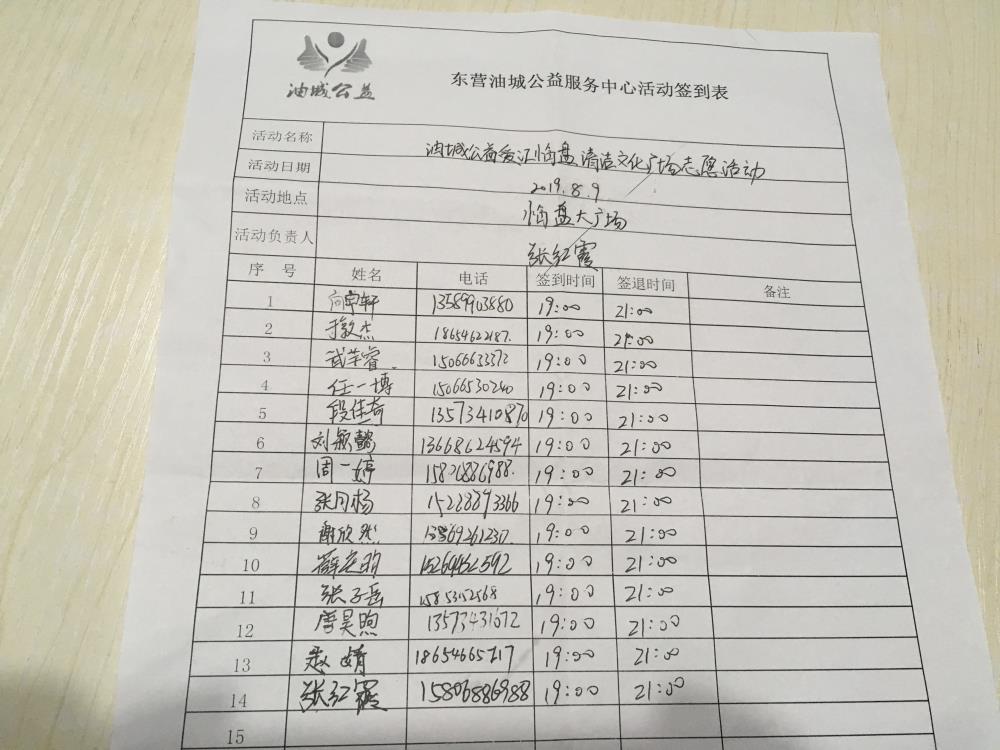 油城公益
东营油城公益服务中心活动签到表
活动名称 油城公益爱汇临盘清洁文化广场志愿活动
活动日期 2019.8.9
活动地点 临盘大广场
活动负责人 张红霞
序号 姓名 电话 签到时间 签退时间 备注
1 13589903880 19:00 21:00
2 于毅杰 18654622187. 19:00 21:00
3 15066633372 19:00 21:00
4 任一博 15066530240 19:00 21:00
5 段佳奇 13573410870 19:00 21:00
6 刘颖懿 13668624594 19:00 21:00
7 周一婷 15806886988. 19:00 21:00
8 张月杨 15228893366 19:00 21:00
9 谢欣然 13869261230 19:00 21:00
10 19:00 21:00
11 张子岳 19:00 21:00
12 唐昊煦 13573431672 19:00 21:00
13 赵婧 19:00 21:00
14 张红霞 15806886988 19:00 21:00
15